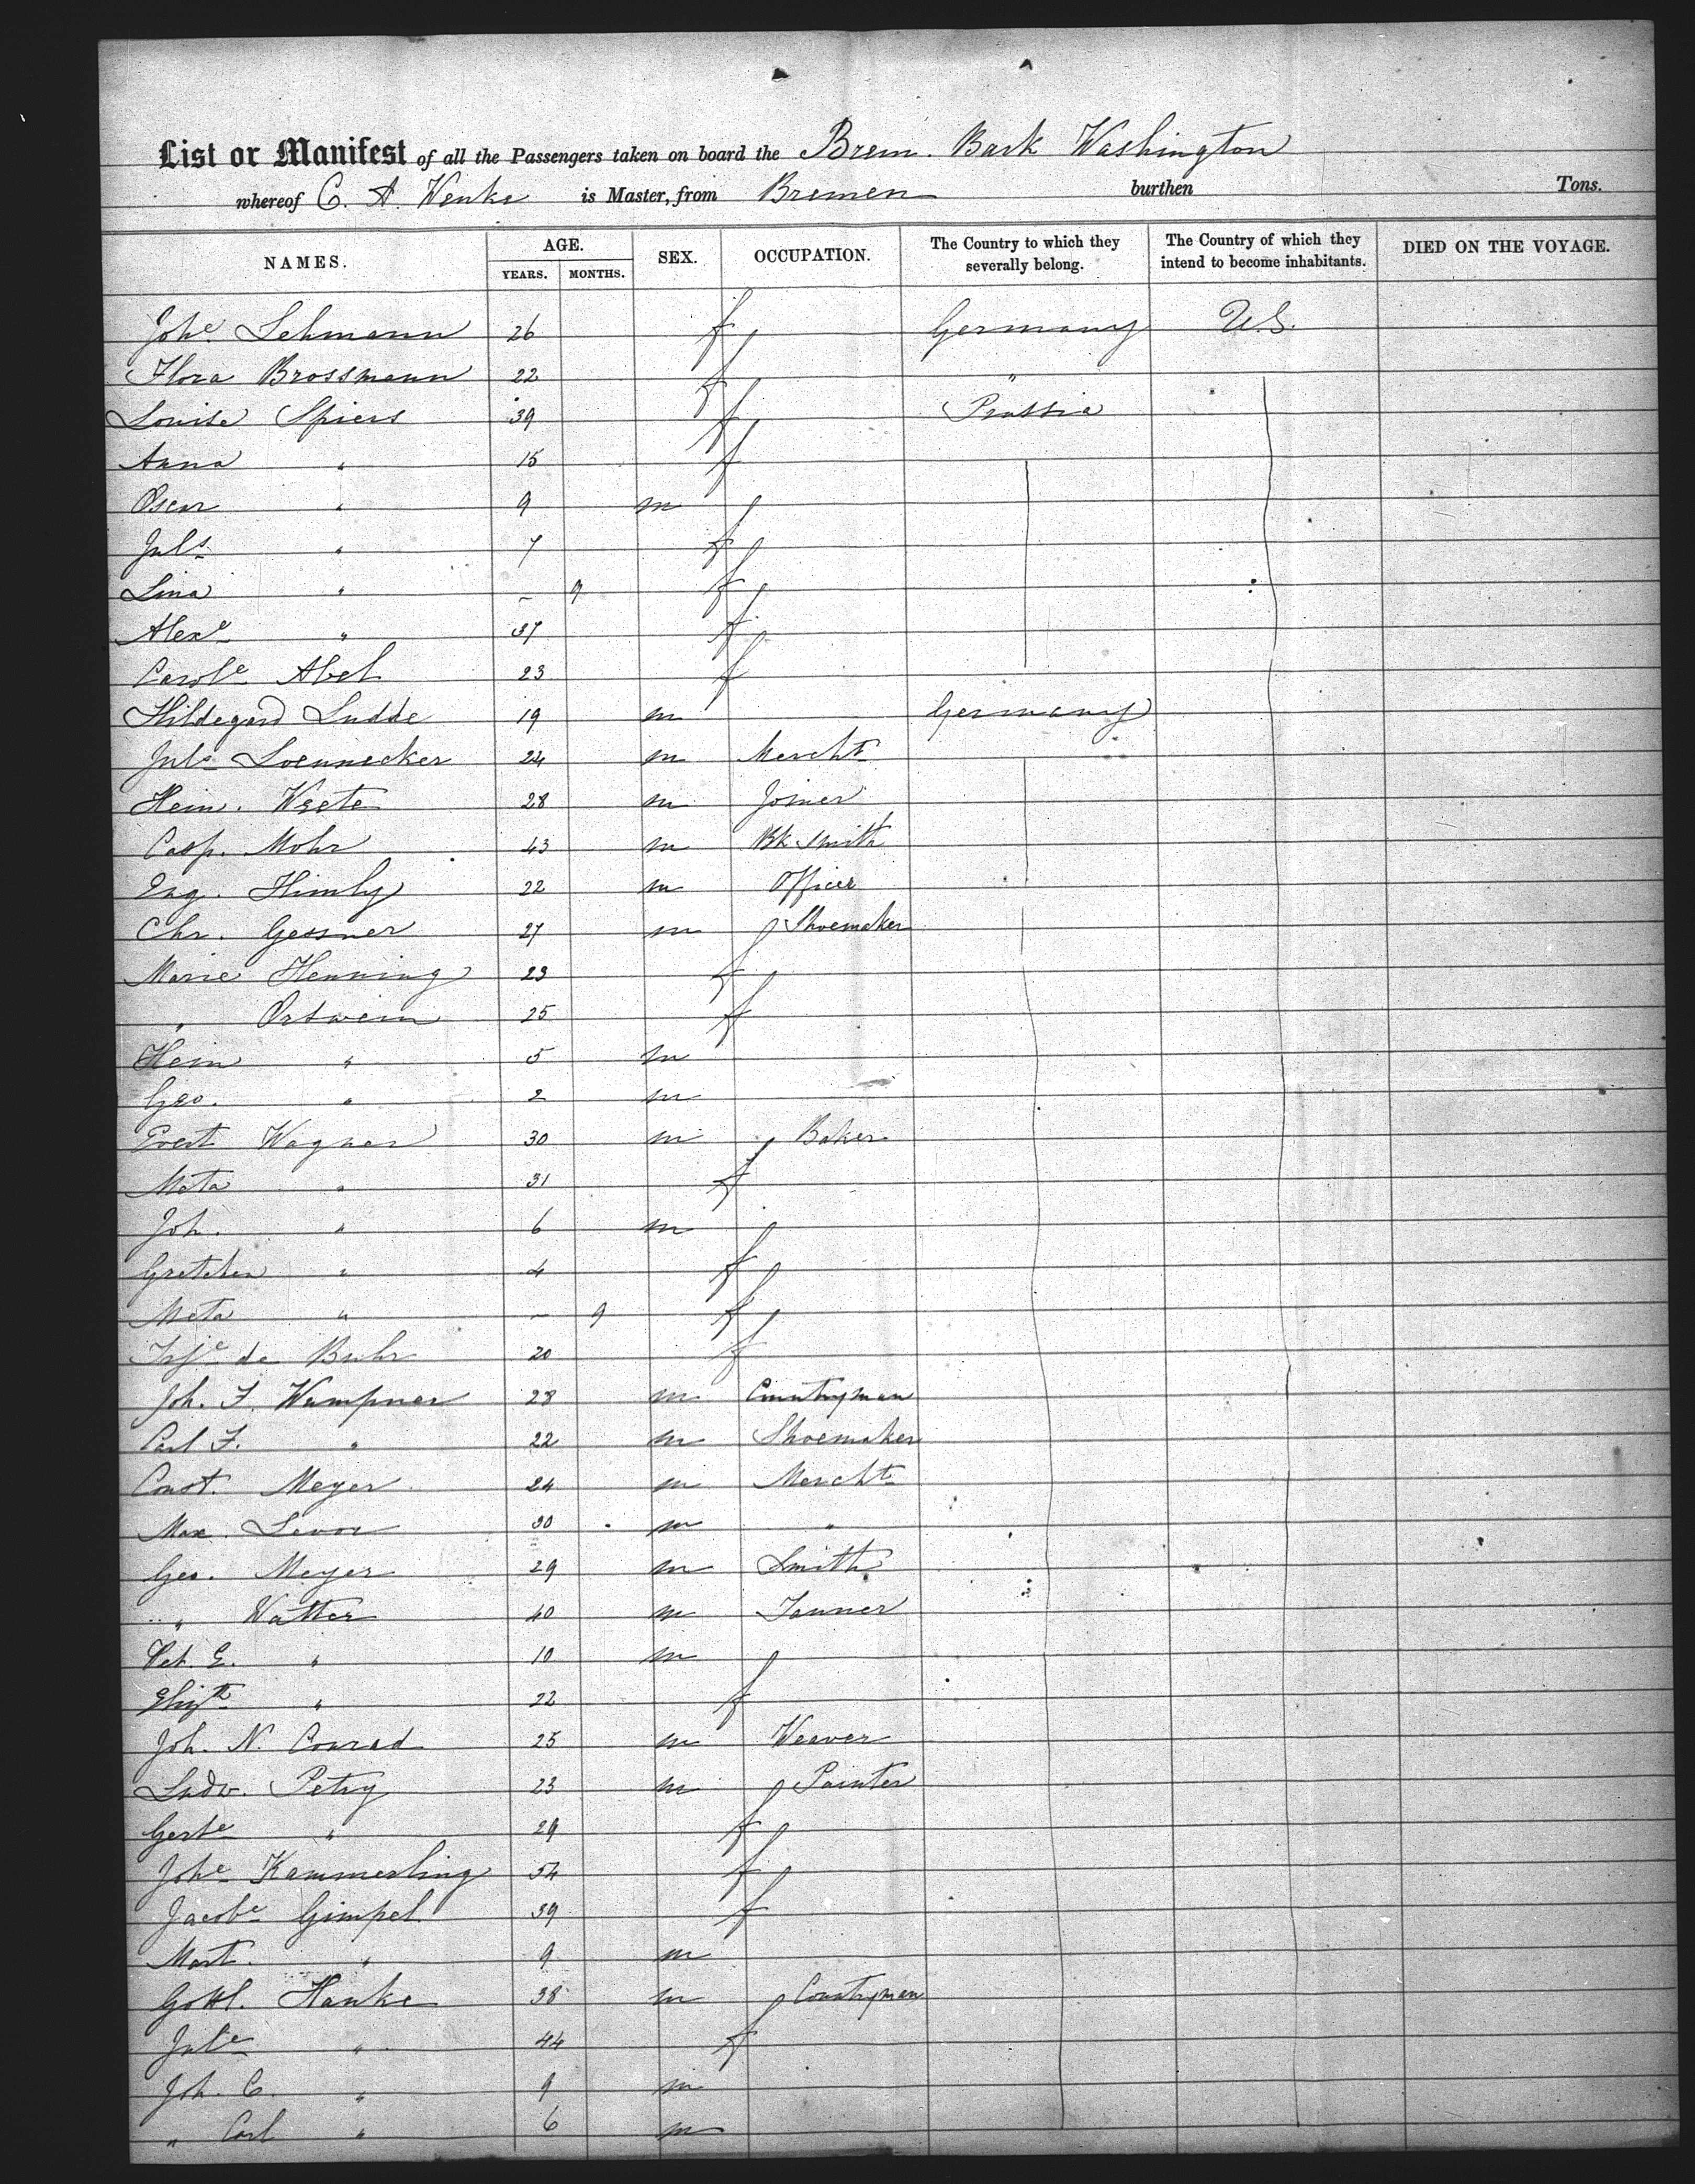 List or Manifest of all the Passengers taken on board the Brem. Bark Washington
whereof C. A. Wenke is Master, from Bremen burthen Tons.
NAMES. AGE. YEARS. MONTHS. SEX. OCCUPATION. The Country to which they severally belong. The Country of which they intend to become inhabitants. DIED ON THE VOYAGE.
Johe Lehmann 26 f Germany U.S.
Flora Brossmann 22 f "
Louise Spiers 39 f Prussia
Anna " 15 f
Oscar " 9 m
Juls " 7 f
Lina " - 9 f
Alexe " 37 f
Carole Abel 23 f
Hildegard Ludde 19 m Germany
Juls Loennecker 24 m Mercht
Hein. Weete 28 m Joiner
Casp. Mohr 43 m Bk Smith
Eug. Himly 22 m Officer
Chr. Gessner 27 m Shoemaker
Marie Henning 23 f
" Ortwein 25 f
Hein " 5 m
Geo. " 2 m
Evert Wagner 30 m Baker
Meta " 31 f
Joh. " 6 m
Gretchen " 4 f
Meta " - 9 f
de Buhr 20 f
Joh. F. Wumpner 28 m Countryman
Carl F. " 22 m Shoemaker
Const. Meyer 24 m Mercht
Max. 30 m "
Geo. Meyer 29 m Smith
" Watter 40 m Tanner
Pet. E. " 10 m
Elizth " 22 f
Joh. N. Conrad 25 m Weaver
Ludw. Petry 23 m Painter
Gerte " 29 f
Johe Kammerling 54 f
Jacobe Gimpel 39 f
Mart. " 9 m
Gottl. Hanke 38 m Countryman
Jule " 44 f
Joh. C. " 9 m
" Carl " 6 m